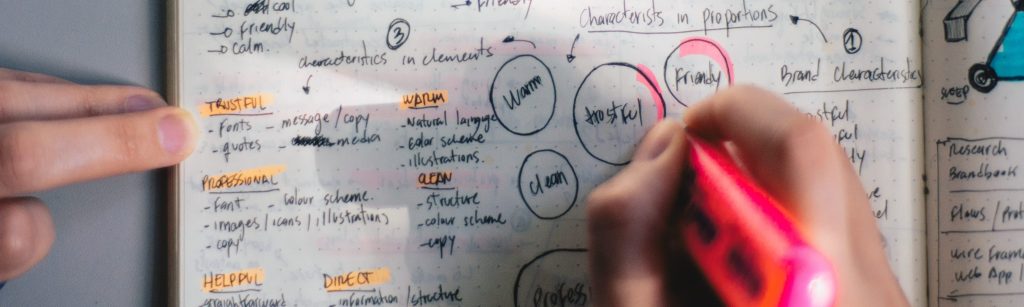 → cool
→ friendly
→ Calm.
→ friendly
③
Characteristics in elements
Characterists in proportions
①
Brand Characteristics
TRUSTFUL
- Fonts
- quotes
- message/copy
- media
WARM
- Natural language
- color scheme
- illustrations.
PROFESSIONAL
- Font
- Colour scheme.
- images / icons / illustrations
- copy
CLEAN
- structure
- colour scheme
- copy
HELPFUL
straightforward
DIRECT
- information / structure
Warm
trustful
Friendly
clean
Profess
SWEEP
Research
Brandbook
Flows / Prot
wire Frame
web App /